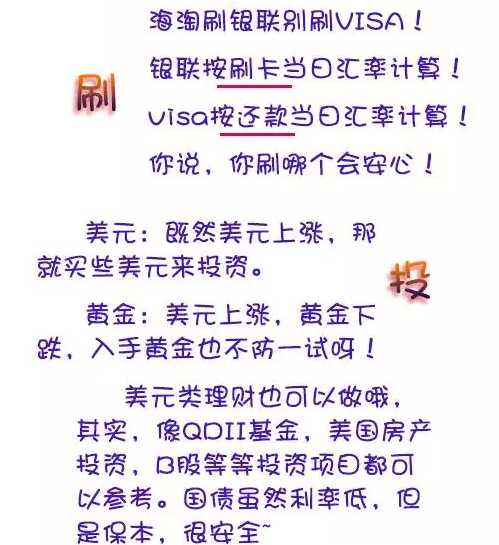 刷
海淘刷银联别刷VISA！
银联按刷卡当日汇率计算！
visa按还款当日汇率计算！
你说，你刷哪个会安心！
投
美元：既然美元上涨，那
就买些美元来投资。
黄金：美元上涨，黄金下
跌，入手黄金也不防一试呀！
美元类理财也可以做哦，
其实，像QDII基金，美国房产
投资，B股等等投资项目都可
以参考。国债虽然利率低，但
是保本，很安全~